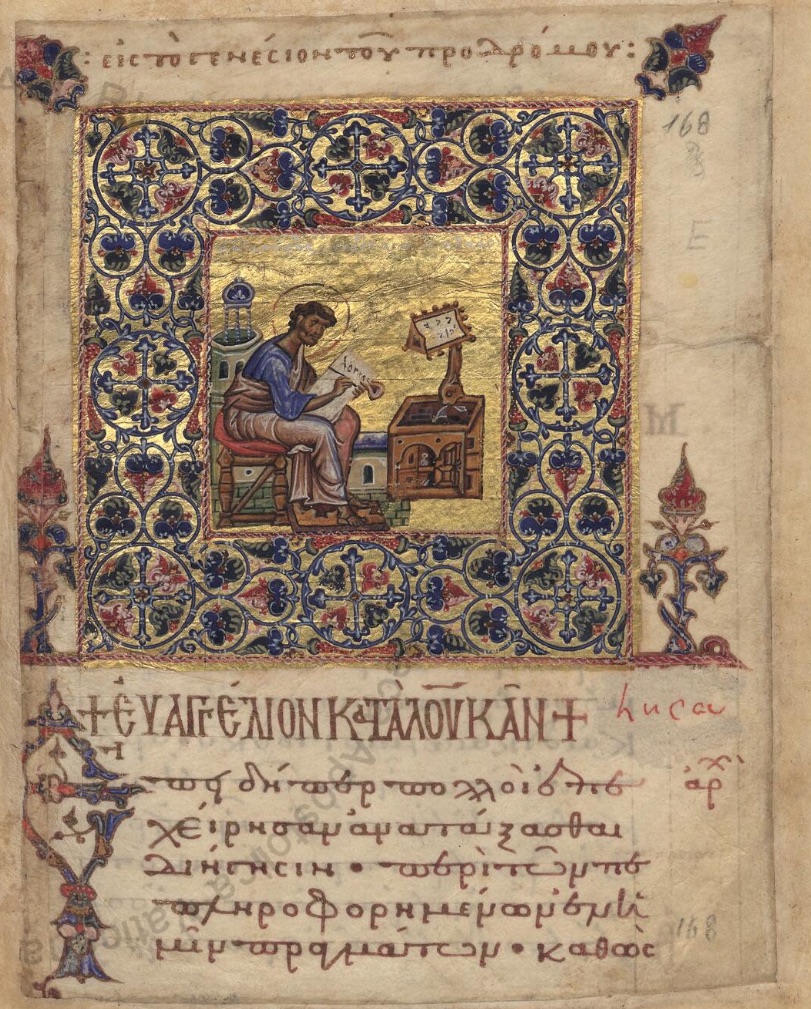 : εἰς τὸ γενέσιον τοῦ προδρόμου :
168
E
+ ἐυαγγέλιον κατὰ λουκᾶν +
Luca
Ἐπειδήπερ πολλοὶ ἐπε
ἀρχ
χείρησαν ἀνατάξασθαι
διήγησιν · περὶ τῶν πε
πληροφορημένων ἐν ἡ
μῖν πραγμάτων · καθὼς
168